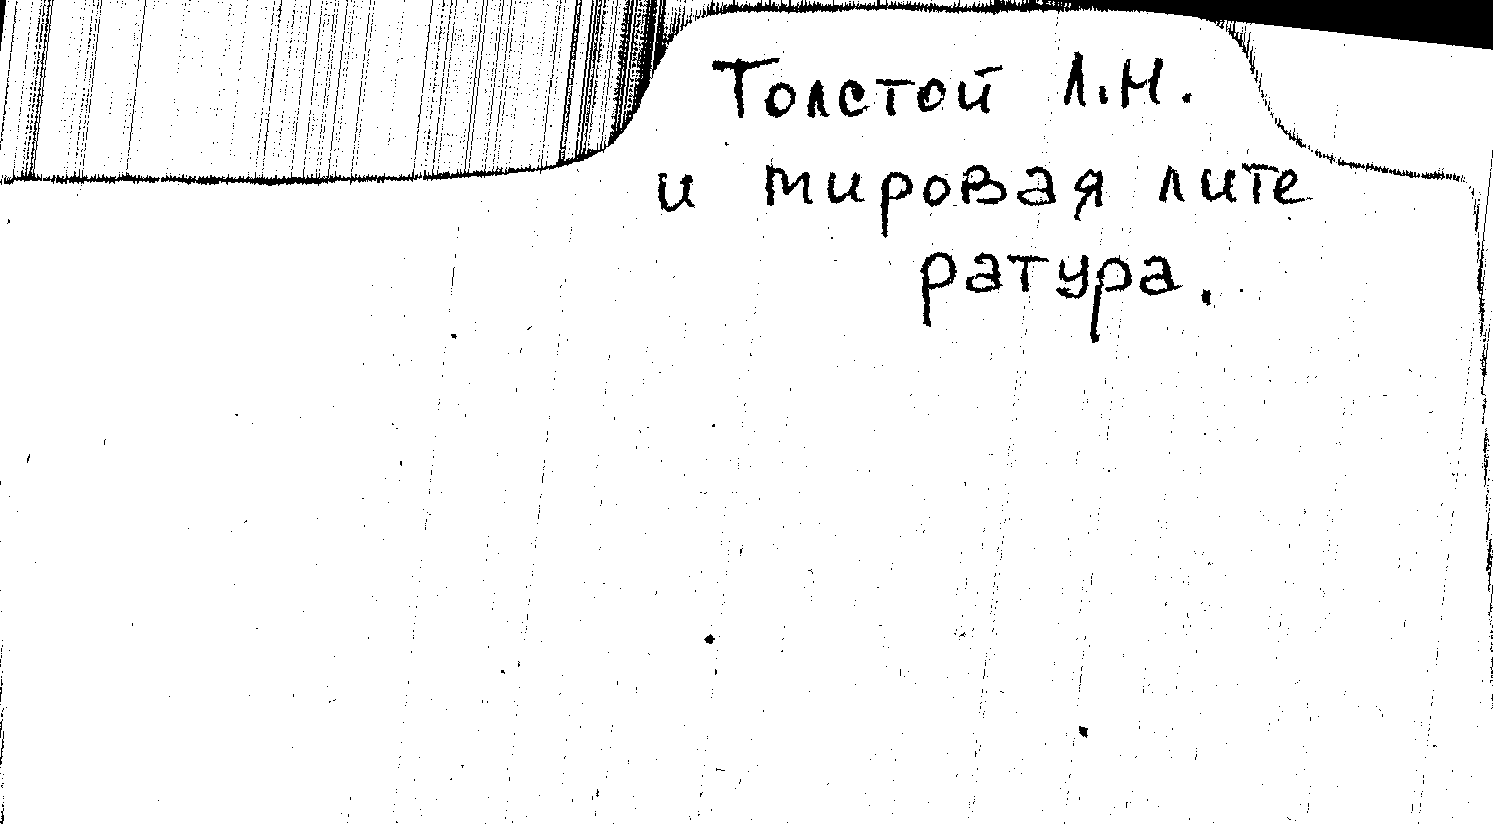 Толстой Л.Н.
и мировая лите
ратура.